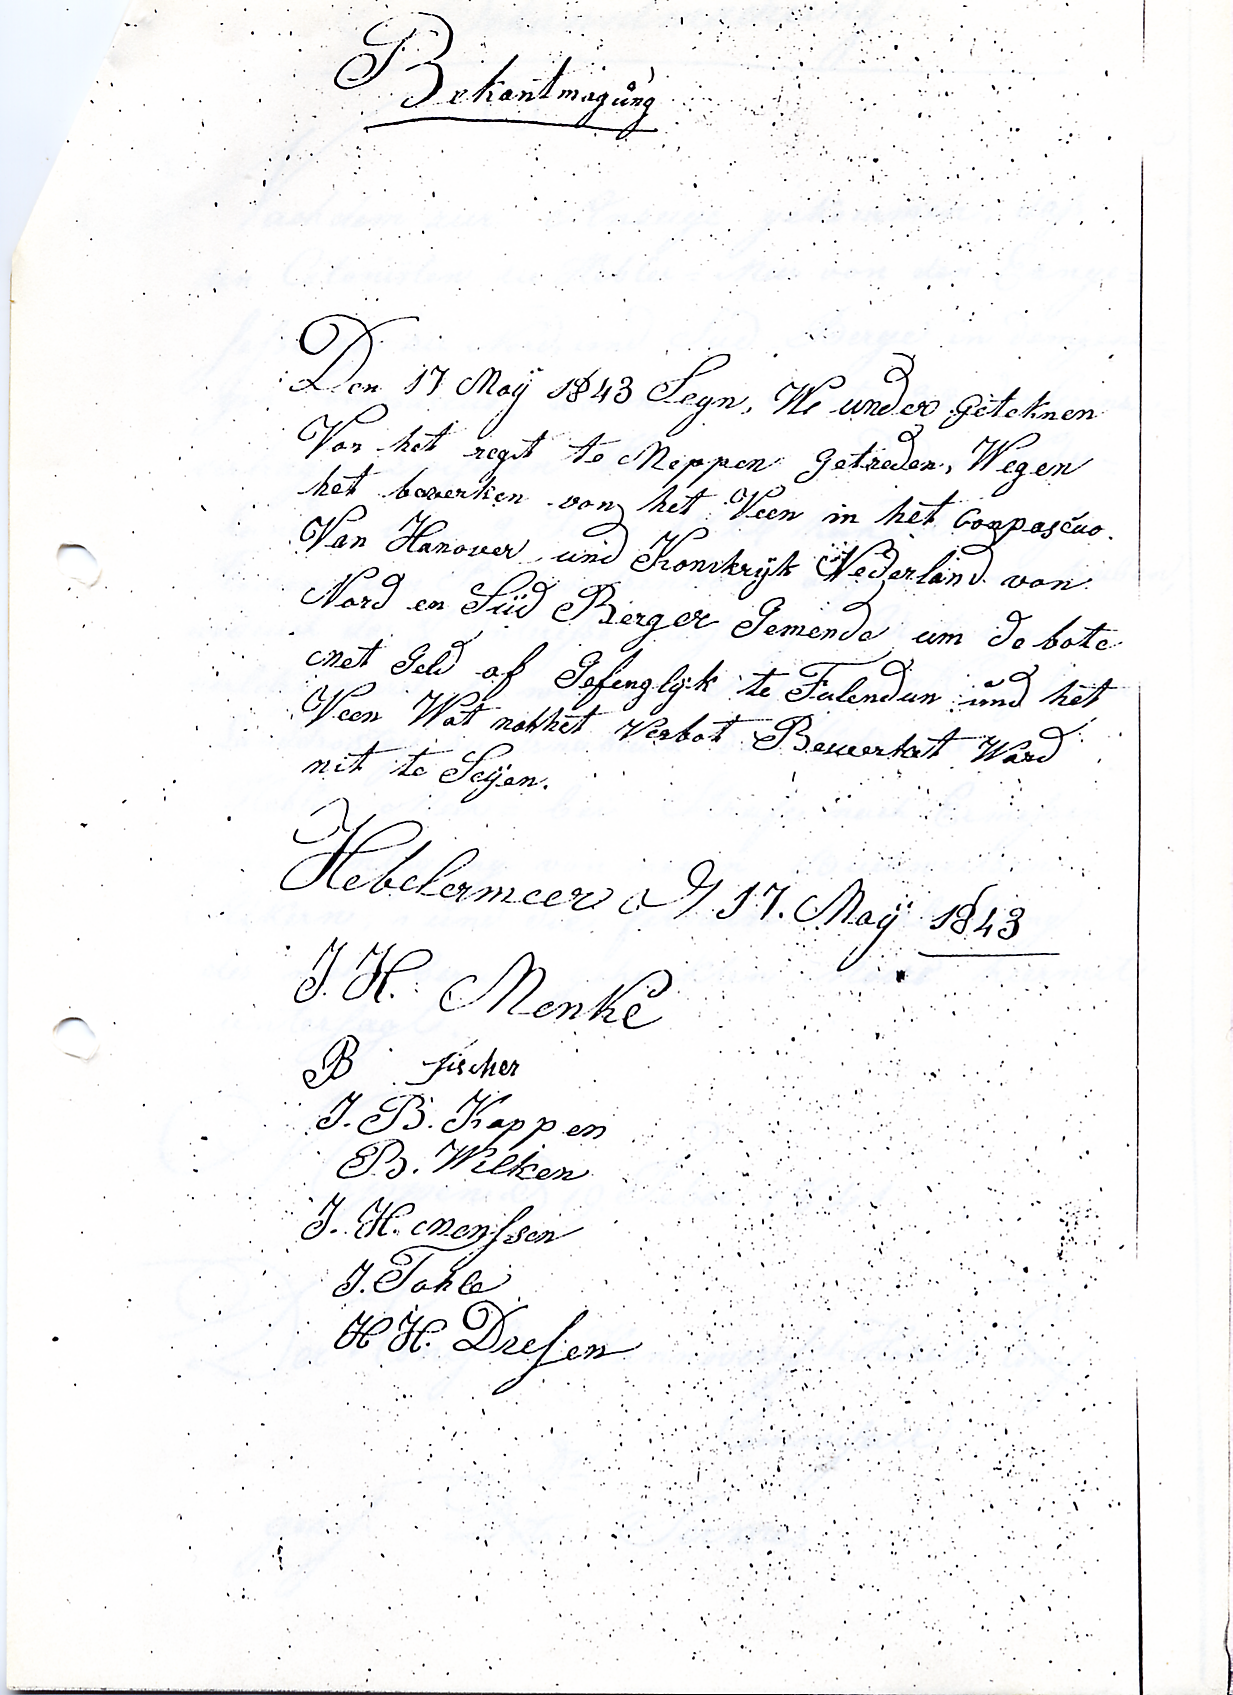 Bekantmagung
Den 17 Maÿ 1843 Seyn, We under geteknen
Vor het regt te Meppen getreden, Wegen
het bewerken von het Veen in het Conpascuo.
Van Hanover und Konikrÿk Nederland von
Nord en Süd Berger Gemende um de bote
met geld of gefenglÿk te Falendun und het
Veen Wat nahhet Verbot Bewerket Ward
nit te Seÿen.
Hebelermeer 17. Maÿ 1843
J. H. Menke
B fischer
J. B. Kappen
B. Wilken
J. H. Menssen
J. Tohle
H H. Dresen